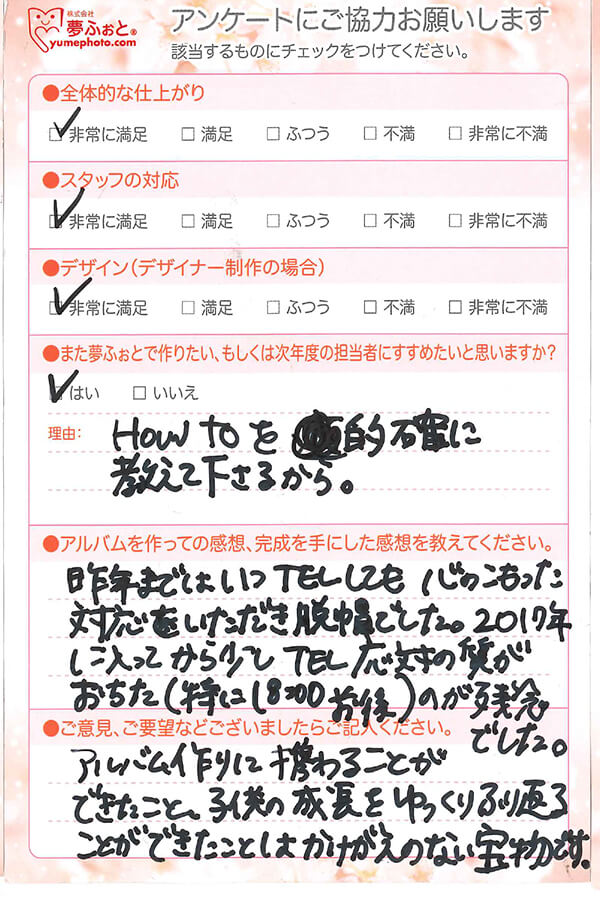 株式会社
夢ふぉと®
yumephoto.com
アンケートにご協力お願いします
該当するものにチェックをつけてください。
●全体的な仕上がり
☑ 非常に満足 □ 満足 □ ふつう □ 不満 □ 非常に不満
●スタッフの対応
☑ 非常に満足 □ 満足 □ ふつう □ 不満 □ 非常に不満
●デザイン(デザイナー制作の場合)
☑ 非常に満足 □ 満足 □ ふつう □ 不満 □ 非常に不満
●また夢ふぉとで作りたい、もしくは次年度の担当者にすすめたいと思いますか?
☑ はい □ いいえ
理由: HOW TOを 的確に
教えて下さるから。
●アルバムを作っての感想、完成を手にした感想を教えてください。
昨年まではいつTELしても 心のこもった
対応をいただき脱帽でした。2017年
に入ってから少しTEL応対の質が
おちた(特に18:00前後)のが残念
でした。
●ご意見、ご要望などございましたらご記入ください。
アルバム作りに携わることが
できたこと、子供の成長をゆっくりふり返る
ことができたことはかけがえのない宝物です。